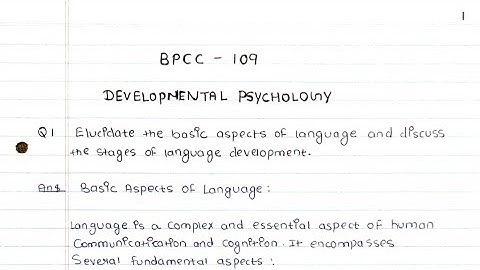 1
BPCC - 109
DEVELOPMENTAL PSYCHOLOGY
Q1 Elucidate the basic aspects of language and discuss
the stages of language development.
Ans Basic Aspects of Language:
Language is a complex and essential aspect of human
Communicatication and Cognition. It encompasses
Several fundamental aspects: